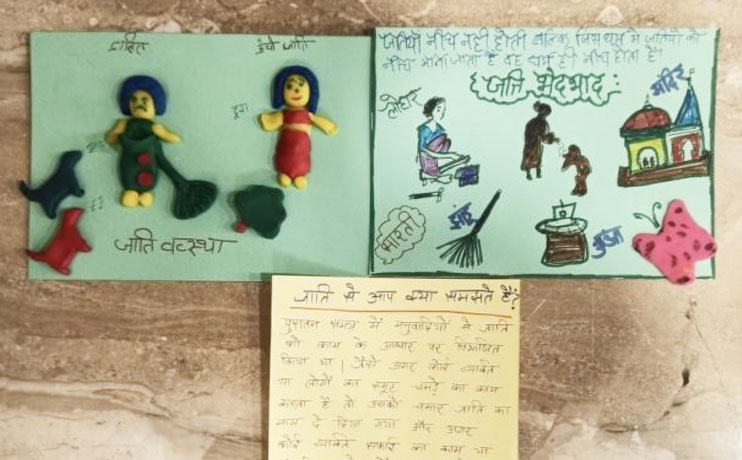 दलित
ऊंची जाति
जाति व्यवस्था
जातियाँ नीच नहीं होती बल्कि जिस धर्म में जातियों को
नीच माना जाता है वह धर्म ही नीच होता है।
जाति भेदभाव
लोहार
मंदिर
भारती
झाड़ू
कुआ
जाति से आप क्या समझते हैं?
पुरातन समय में मनुवादियों ने जाति
को काम के आधार पर विभाजित
किया था। जैसे अगर कोई व्यक्ति
या लोगों का समूह चमड़े का काम
करता है तो उसको चमार जाति का
नाम दे दिया गया और अगर
कोई व्यक्ति सफाई का काम या